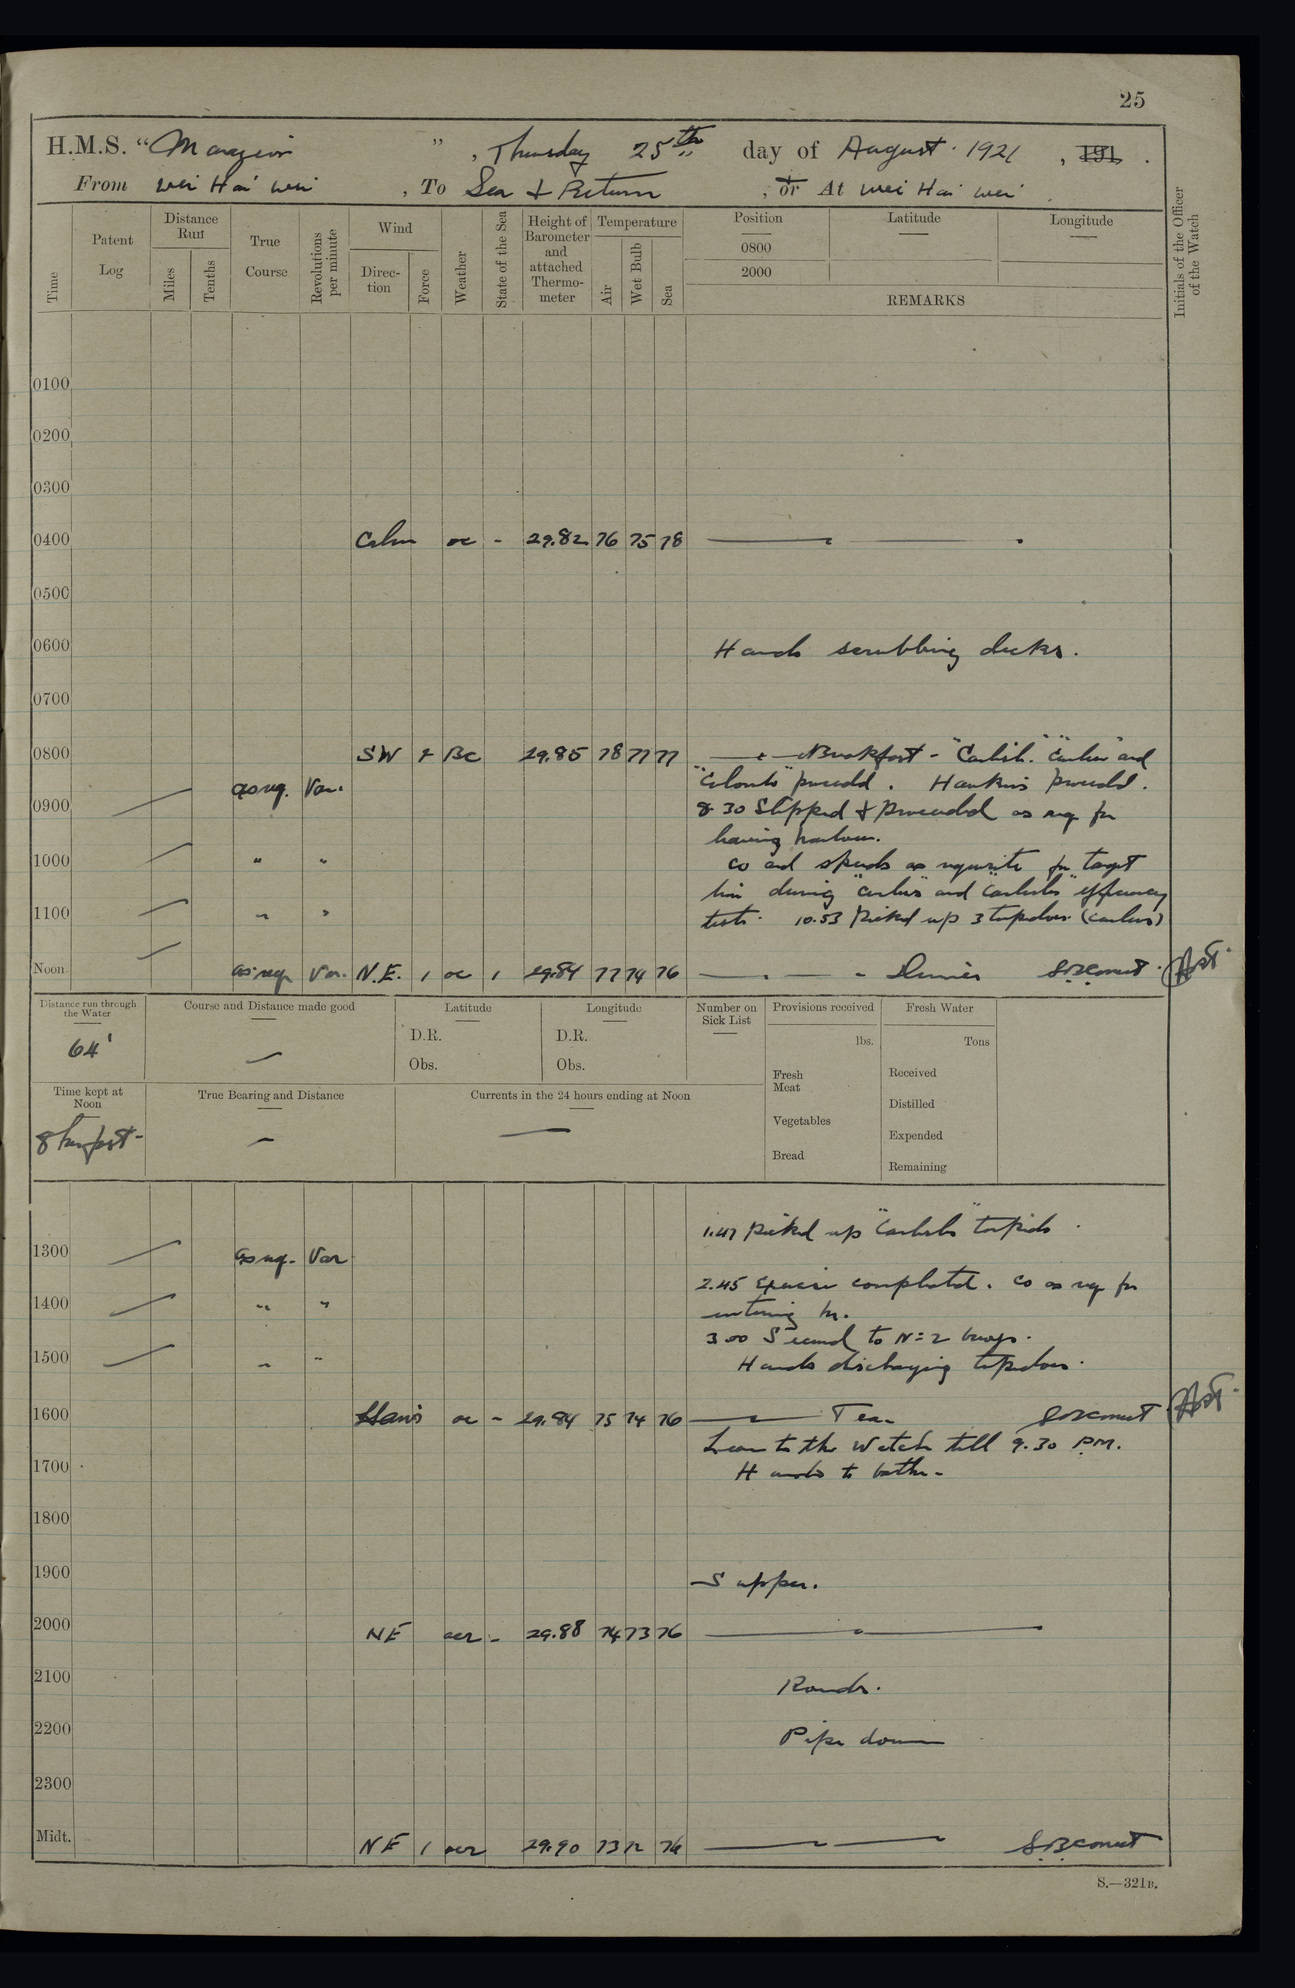 25
H.M.S. "Marazion", Thursday 25th day of August 1921, 191 .
From Wei Hai Wei, To Sea & Return, or At Wei Hai Wei
Time
Patent Log
Distance Run
Miles
Tenths
True Course
Revolutions per minute
Wind
Direction
Force
Weather
State of the Sea
Height of Barometer and attached Thermometer
Temperature
Air
Wet Bulb
Sea
Position
0800
2000
Latitude
Longitude
REMARKS
Initials of the Officer of the Watch
0100
0200
0300
0400 Calm oc - 29.82 76 75 78
0500
0600 Hands scrubbing decks.
0700
0800 SW 2 BC 29.85 78 77 77 Breakfast - "Carlisle" "Curlew" and
"Colombo" proceeded. Hawkins proceeded.
as req. Var.
0900 8.30 Slipped & proceeded as req for
leaving harbour.
1000 " " Co and speeds as requisite for target
line during "Curlew" and "Carlisle's" efficiency
1100 " " tests. 10.53 Picked up 3 torpedoes (Curlew)
Noon as req Var. N.E. 1 oc 1 29.84 77 74 76 Dinner
Distance run through the Water
64'
Course and Distance made good
Latitude
D.R.
Obs.
Longitude
D.R.
Obs.
Number on Sick List
Provisions received
lbs.
Fresh Meat
Vegetables
Bread
Fresh Water
Tons
Received
Distilled
Expended
Remaining
Time kept at Noon
8 hrs fast
True Bearing and Distance
Currents in the 24 hours ending at Noon
1.47 Picked up "Carlisle's" torpedo.
1300 as req. Var
2.45 Exercise completed. Co as req for
1400 " " entering hr.
3.00 Secured to No 2 buoy.
1500 " " Hands discharging torpedoes.
1600 oc - 29.84 75 74 76 Tea
Leave to the Watch till 9.30 PM.
1700 Hands to bathe -
1800
1900 Supper.
2000 NE ocr - 29.88 74 73 76
2100 Rounds.
2200 Pipe down
2300
Midt. NE 1 ocr 29.90 73 72 76
S.—321B.